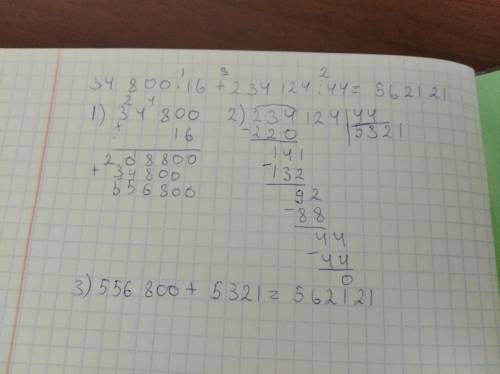 34 800 · 16 + 234 124 : 44 = 562121
1 3 2
1) 34 800
2 4
× 16
208800
+ 34800
556800
2) 234 124 | 44
- 220 5321
141
- 132
92
- 88
44
- 44
0
3) 556 800 + 5321 = 562121